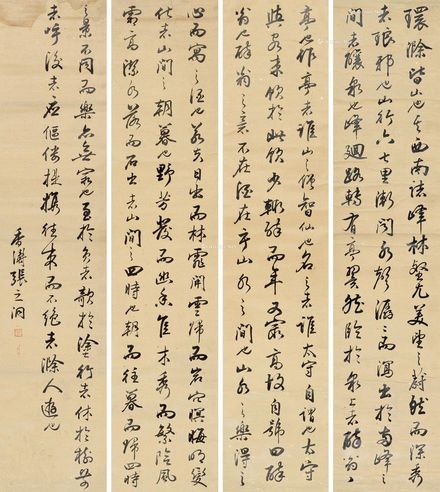 環滁皆山也其西南諸峰林壑尤美望之蔚然而深秀
者琅邪也山行六七里漸聞水聲潺〻而瀉出於兩峰之
間者釀泉也峰迴路轉有亭翼然臨於泉上者醉翁
亭也作亭者誰山之僧智仙也名之者誰太守自謂也太守
與客來飲於此飲少輒醉而年又最高故自號曰醉
翁也醉翁之意不在酒在乎山水之間也山水之樂得之
心而寓之酒也若夫日出而林霏開雲歸而岩穴暝晦明變
化者山間之朝暮也野芳發而幽香佳木秀而繁陰風
霜高潔水落而石出者山間之四時也朝而往暮而歸四時
之景不同而樂亦無窮也至於負者歌於塗行者休於樹前
者呼後者應傴僂提攜往來而不絕者滁人遊也
香濤張之洞